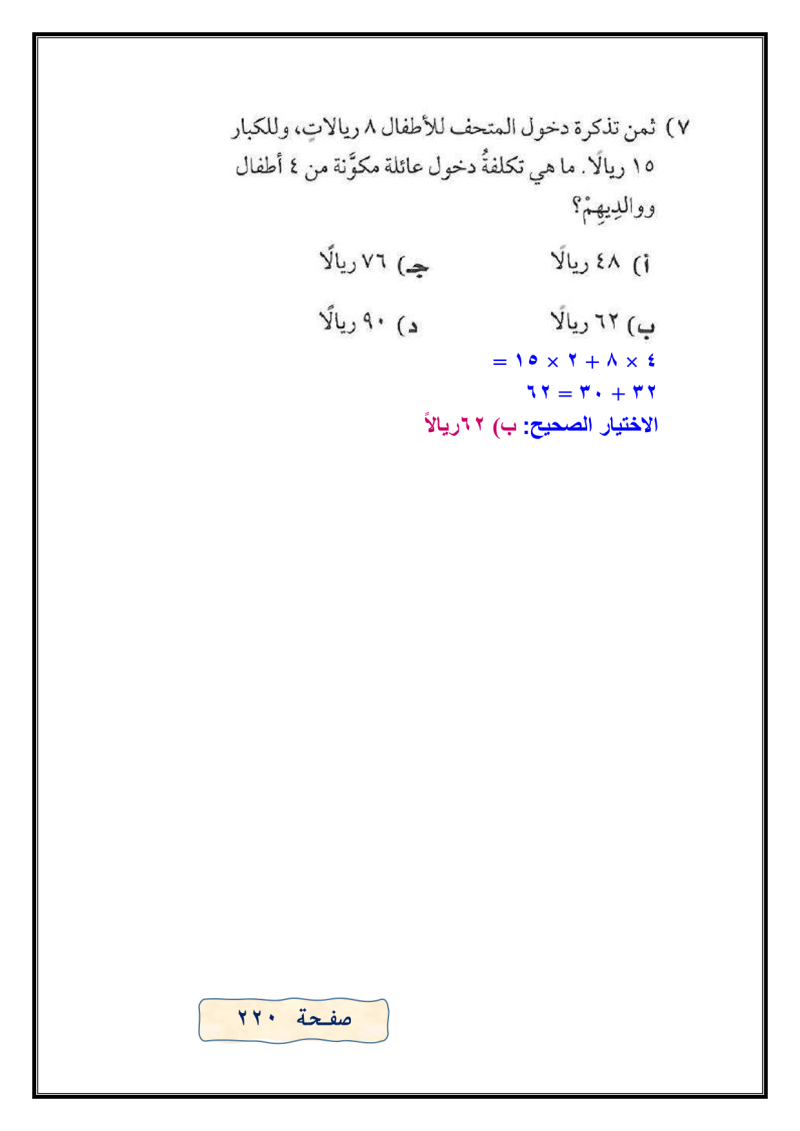 ٧) ثمن تذكرة دخول المتحف للأطفال ٨ ريالاتٍ، وللكبار
١٥ ريالًا. ما هي تكلفةُ دخول عائلة مكوَّنة من ٤ أطفال
ووالدِيهِمْ؟
أ) ٤٨ ريالًا جـ) ٧٦ ريالًا
ب) ٦٢ ريالًا د) ٩٠ ريالًا
٤ × ٨ + ٢ × ١٥ =
٣٢ + ٣٠ = ٦٢
الاختيار الصحيح: ب) ٦٢ريالاً
صفحة ٢٢٠